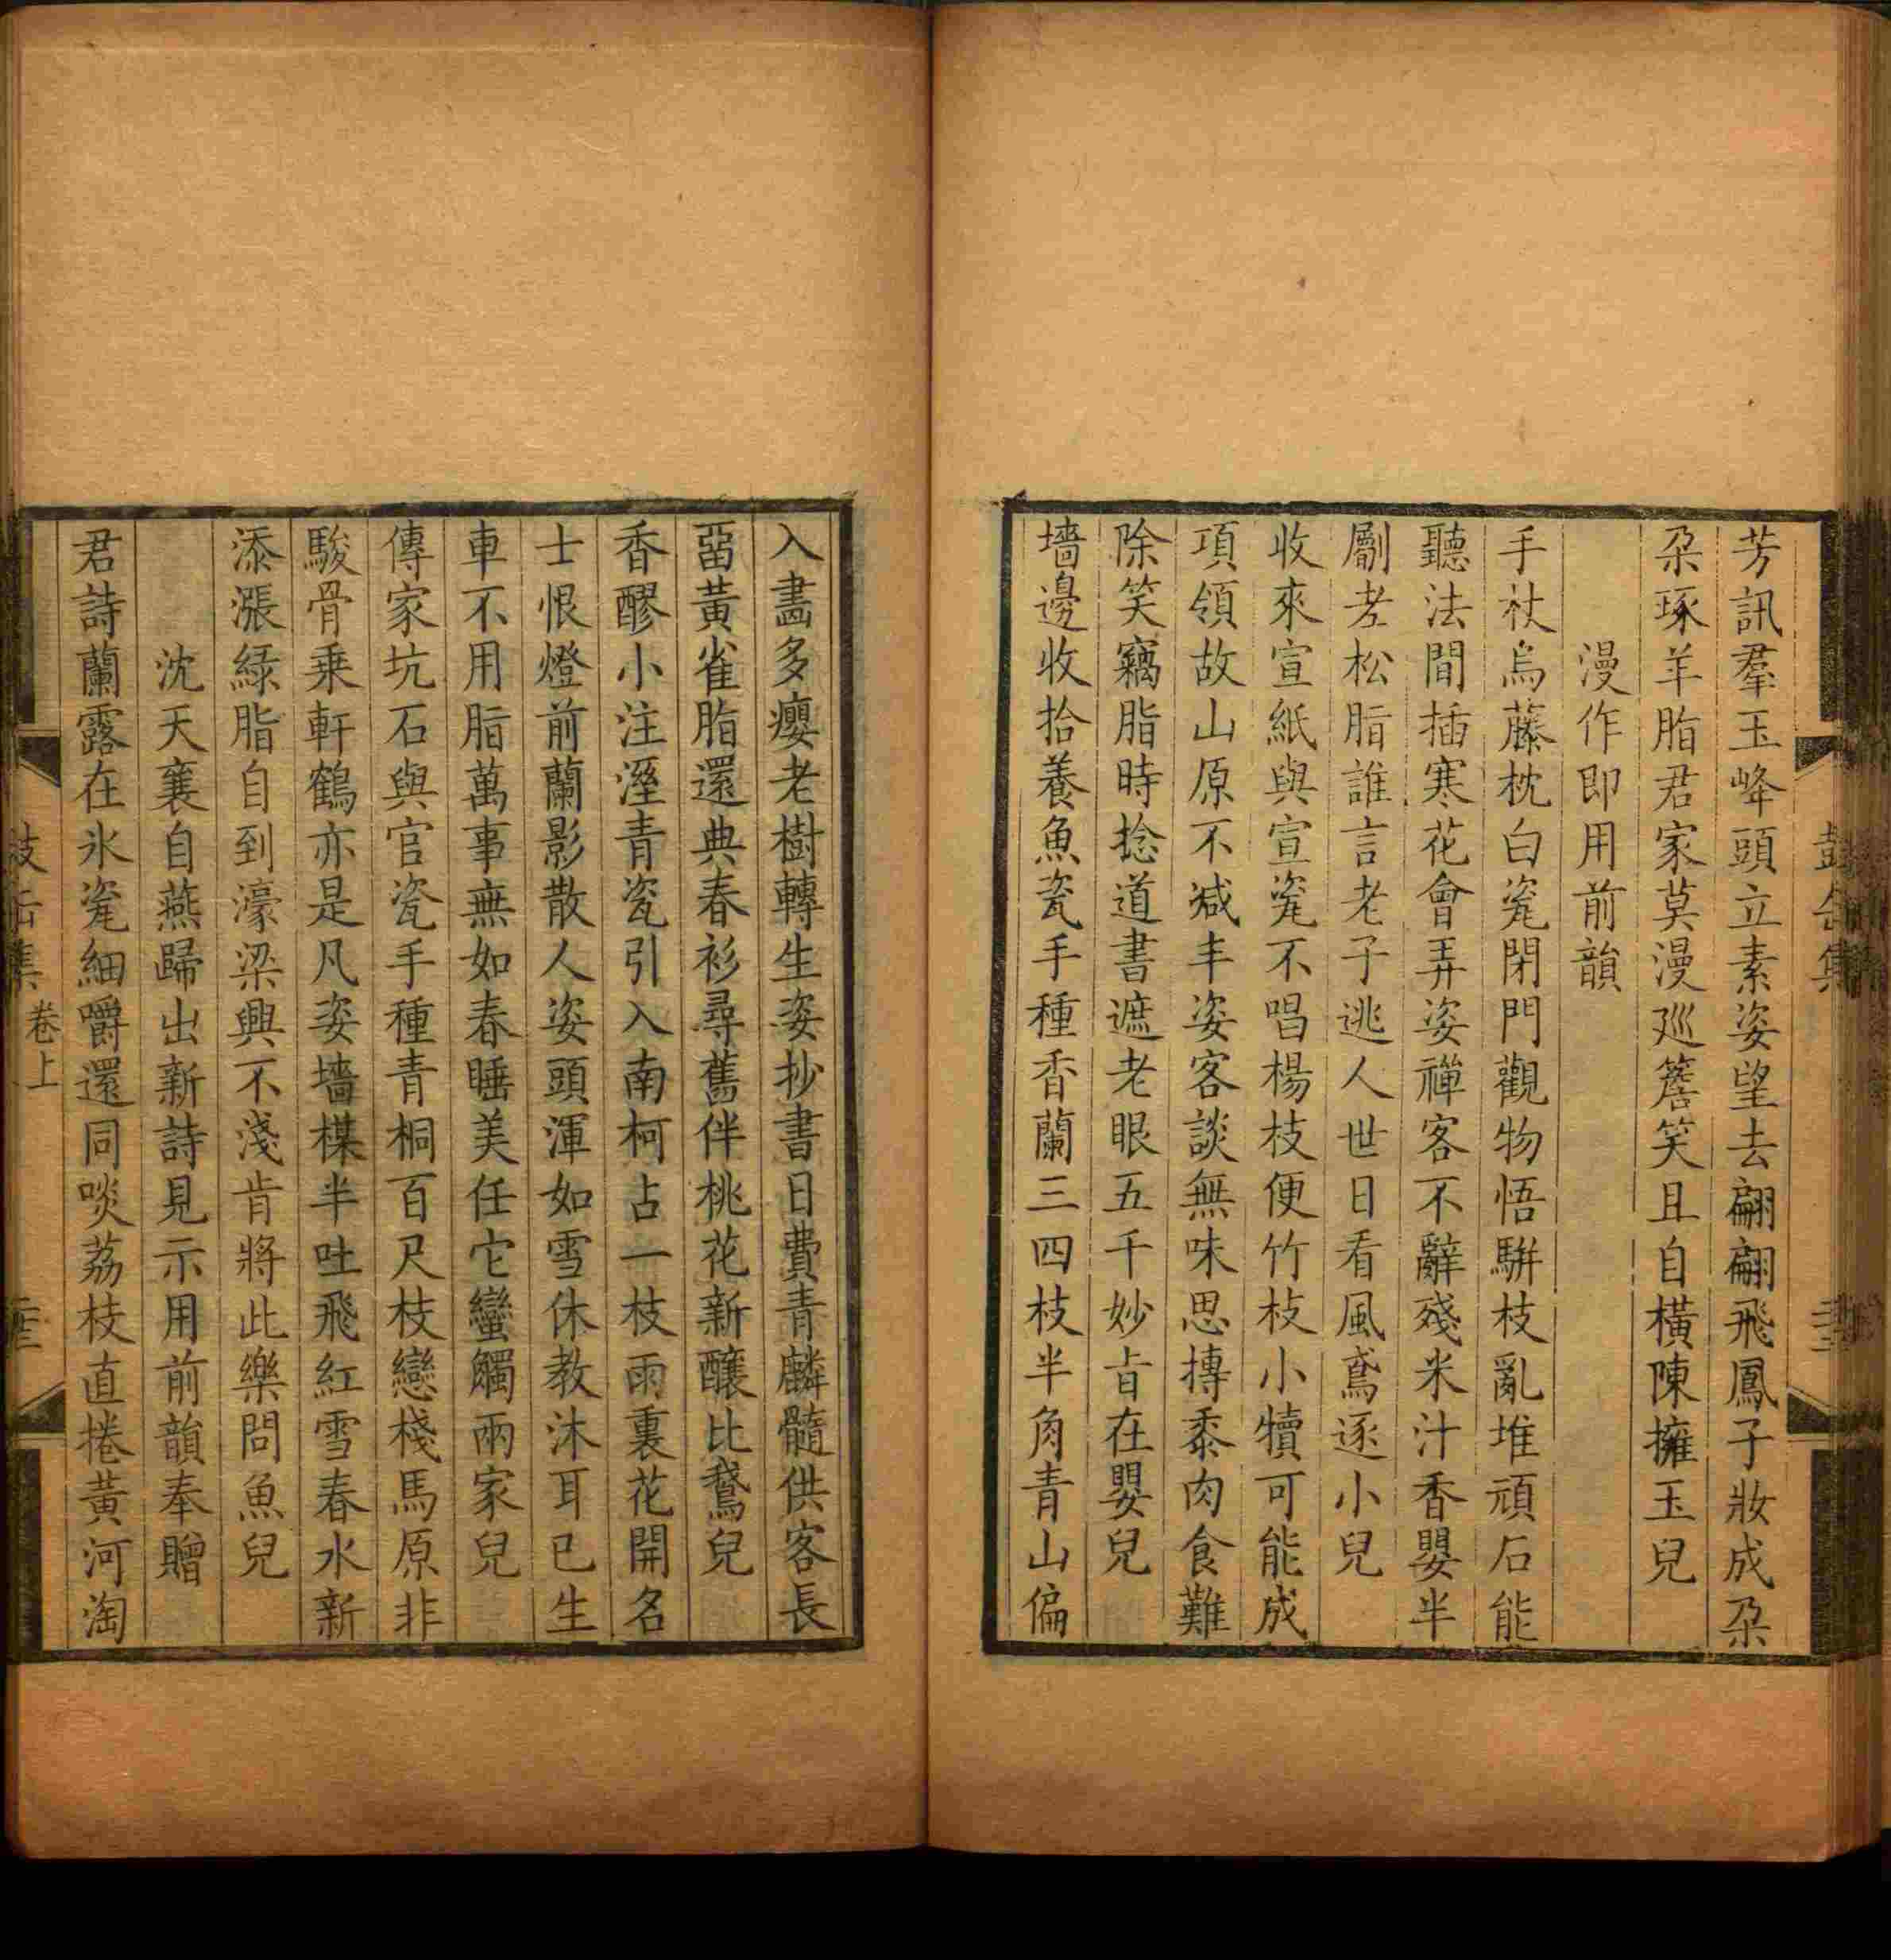 芳訊羣玉峰頭立素姿望去翩翩飛鳳子妝成朶
朶琢羊脂君家莫漫廵簷笑且自橫陳擁玉兒
漫作即用前韻
手杖烏藤枕白瓷閉門觀物悟駢枝亂堆頑石能
聽法間插寒花會弄姿禪客不辭殘米汁香嬰半
劚老松脂誰言老子逃人世日看風鳶逐小兒
收來宣紙與宣瓷不唱楊枝便竹枝小犢可能成
項領故山原不減丰姿客談無味思摶黍肉食難
除笑竊脂時捻道書遮老眼五千妙㫖在嬰兒
墻邊收拾養魚瓷手種香蘭三四枝半角青山偏
入畵多癭老樹轉生姿抄書日費青麟髓供客長
畱黃雀脂還典春衫尋舊伴桃花新釀比鵞兒
香醪小注溼青瓷引入南柯占一枝雨裏花開名
士恨燈前蘭影散人姿頭渾如雪休教沐耳已生
車不用脂萬事無如春睡美任它蠻觸兩家兒
傳家坑石與官瓷手種青桐百尺枝戀棧馬原非
駿骨乗軒鶴亦是凡姿墻楳半吐飛紅雪春水新
添漲綠脂自到濠梁興不淺肯將此樂問魚兒
沈天襄自燕歸出新詩見示用前韻奉贈
君詩蘭露在氷瓷細嚼還同啖荔枝直捲黃河淘
卷上